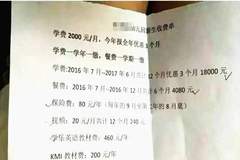 幼儿园新生收费单
学费 2000 元/月，今年报全年优惠 3 个月
学费一学年一缴，餐费一学期一缴
学费:2016 年 7 月~2017 年 6 月 12 个月优惠 3 个月 18000 元
餐费:2016 年 7 月~2016 年 12 月 6 个月 4080 元
保险费：80 元/年（每年的 9 月 年的 8 月底）
20 元/月共计 12 个月 240 元
学乐英语教材费：460 元/年
KMI 教材费：200 元/年